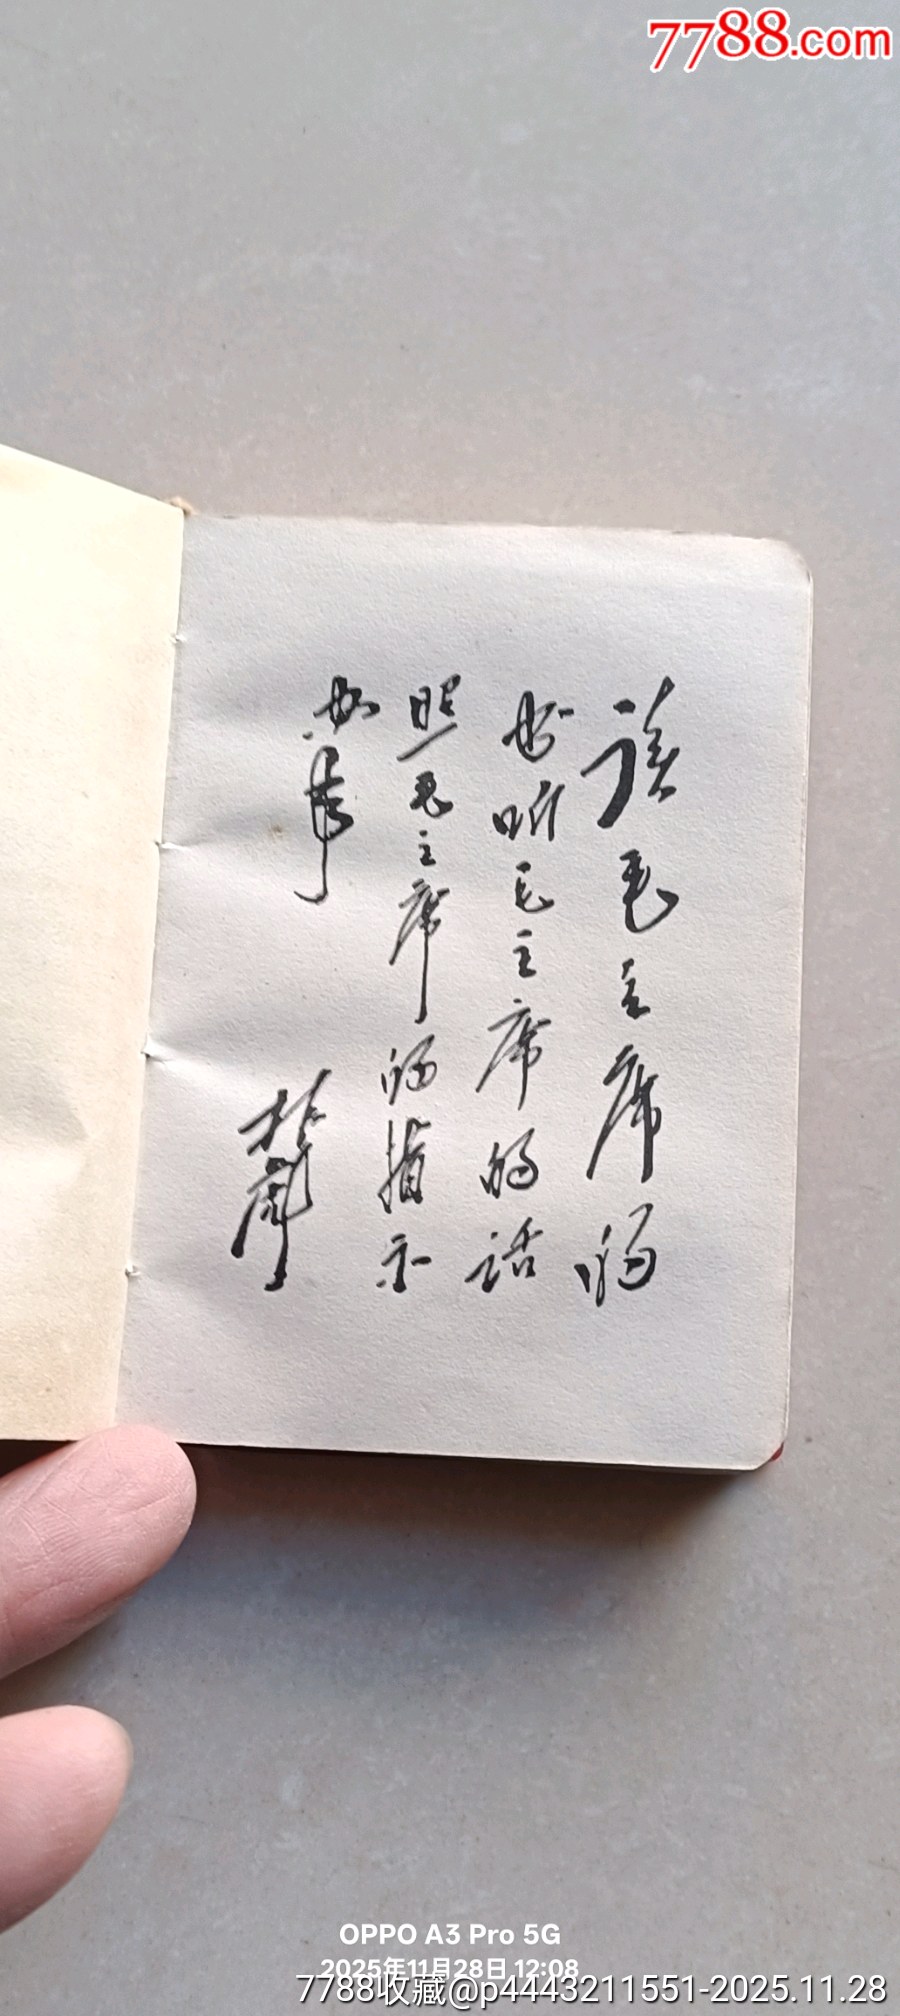 7788.com
读毛主席的
书听毛主席的话
照毛主席的指示
办事
林彪
OPPO A3 Pro 5G
2025年11月28日 12:08
7788收藏@p4443211551-2025.11.28